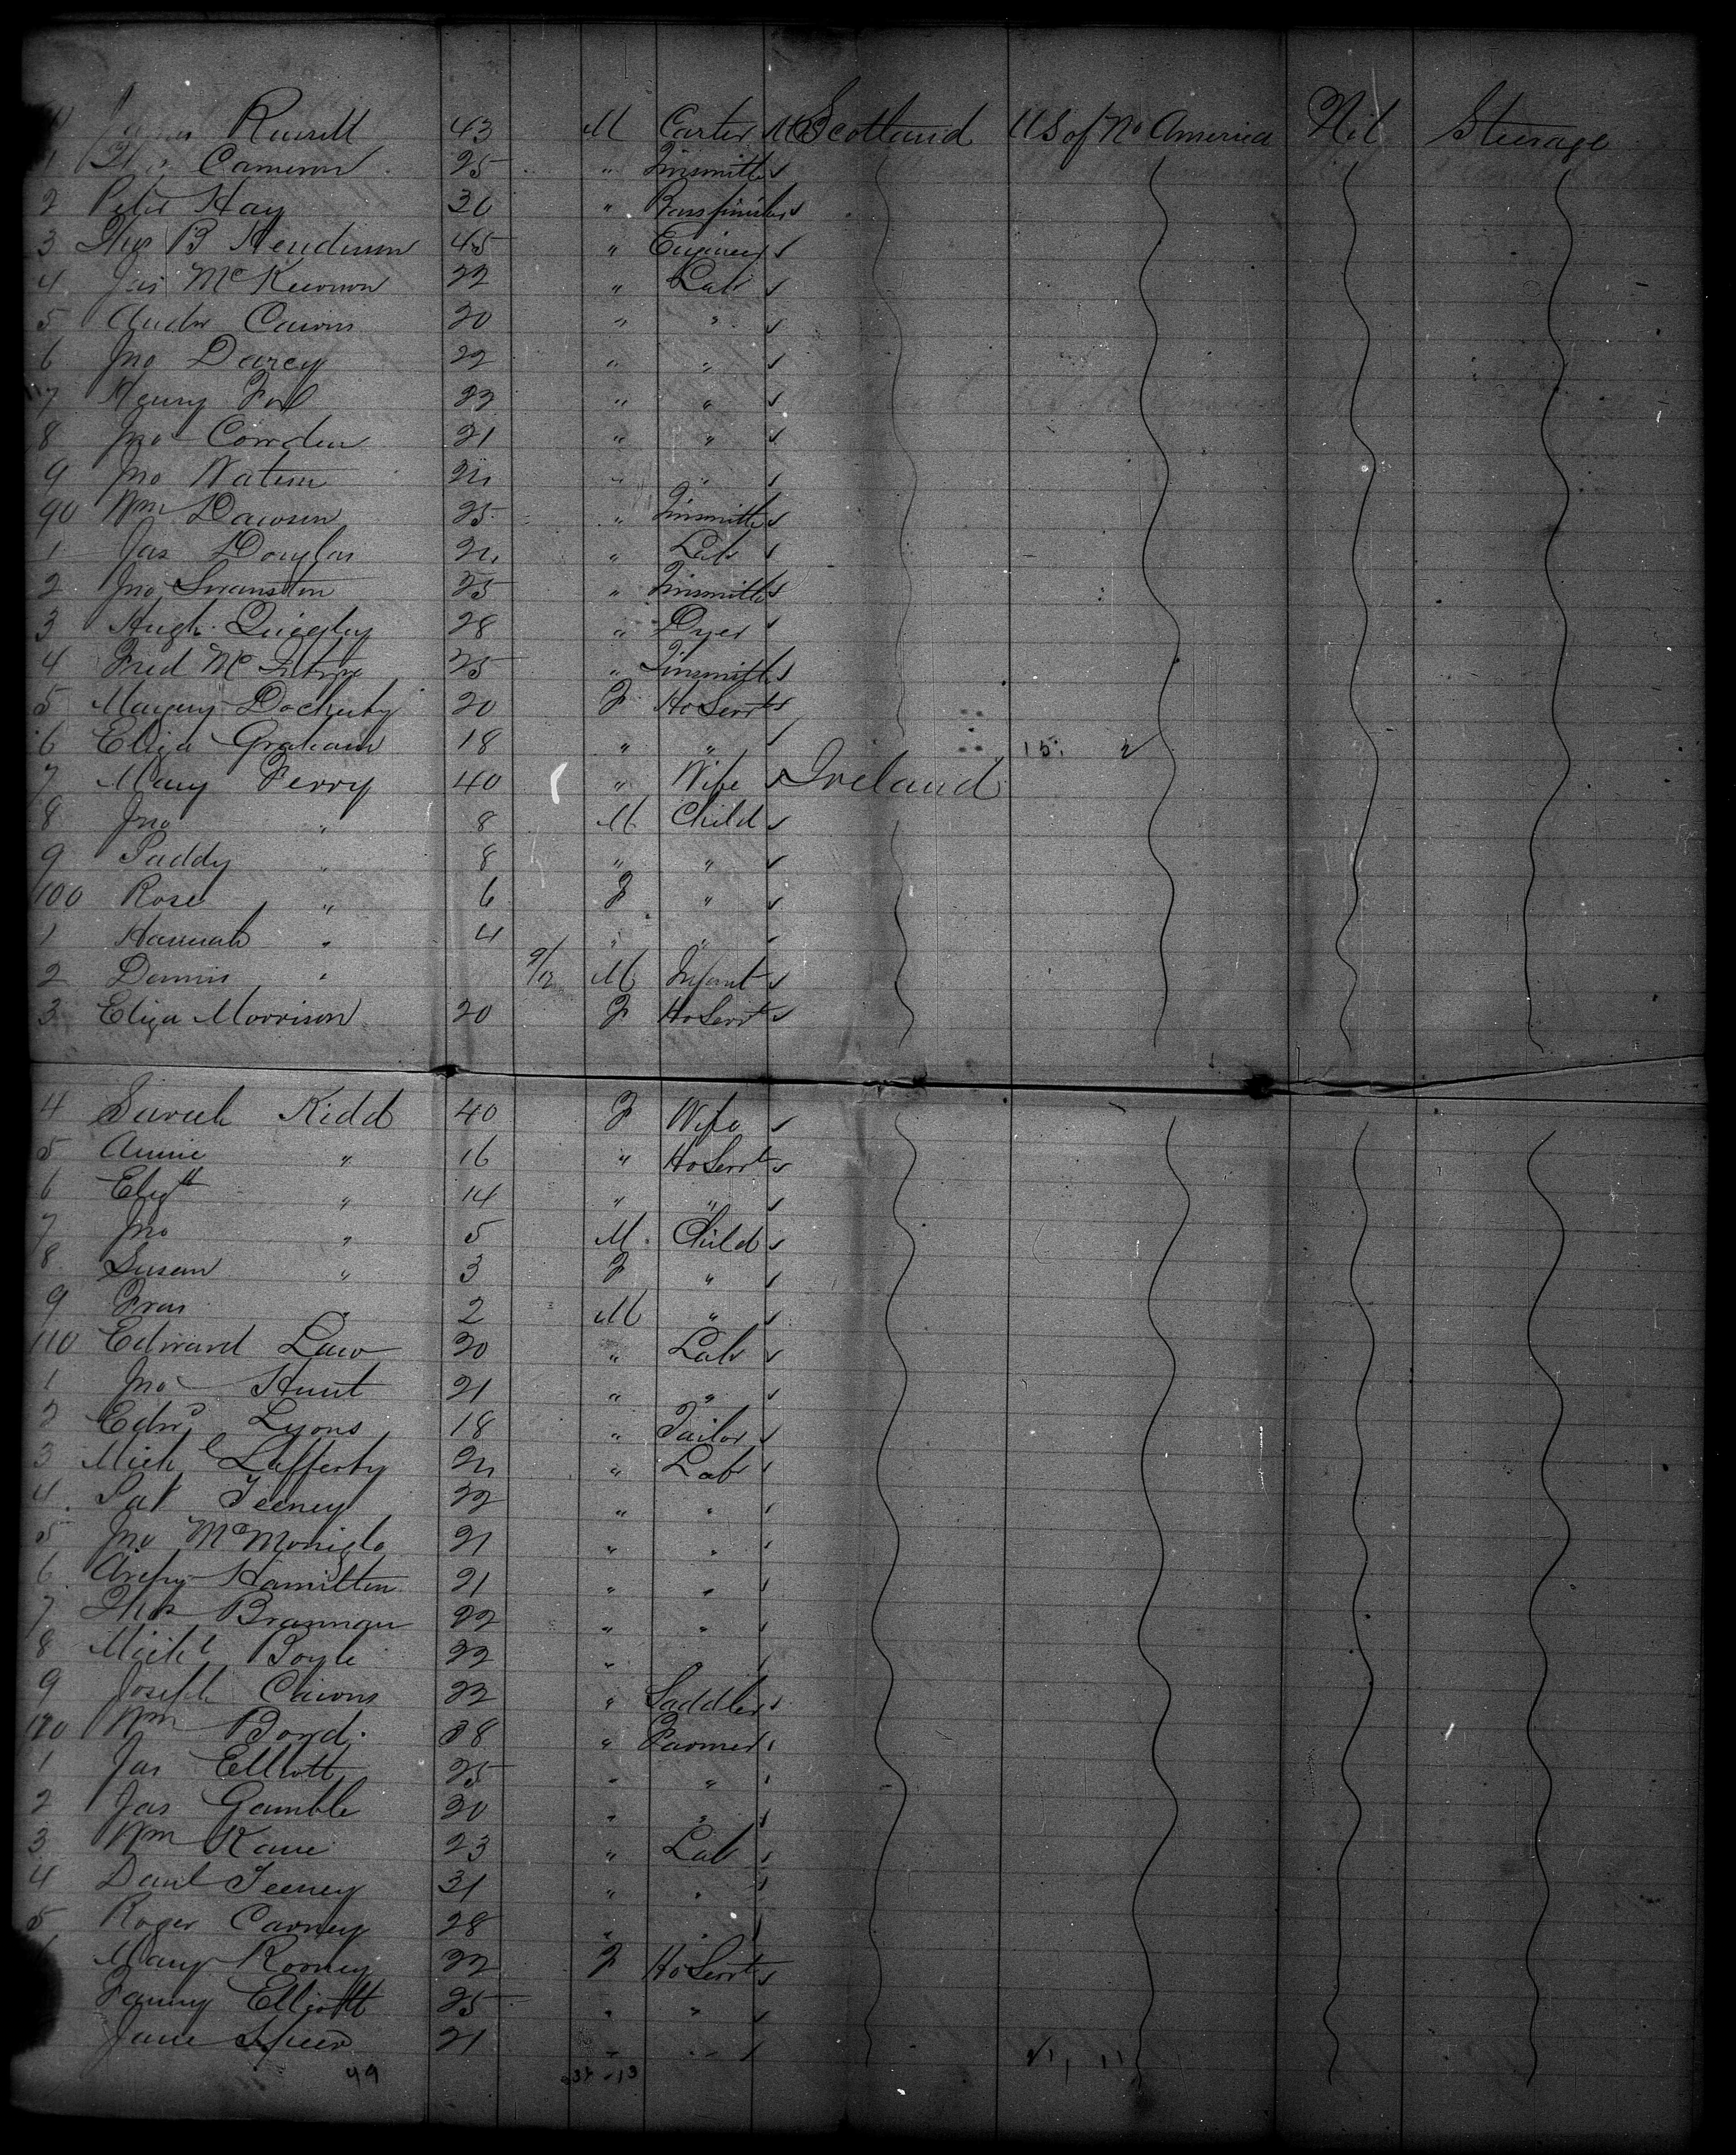 Russell 43 M Carter Scotland US of No America Nil Steerage
1 Cameron 25 " Tinsmith
2 Peter Hay 36 " Brassfinisher
3 Thos B Henderson 45 " Engineer
4 Jas McKeownon 22 " Lab
5 Andw Cairns 20 " "
6 Jno Darcy 22 " "
7 Henry Fox 22 " "
8 Jno Cowden 21 " "
9 Jno Watson 24 " "
90 Wm Dawson 25 " Tinsmith
1 Jas Douglas 24 " Lab
2 Jno Swanston 25 " Tinsmith
3 Hugh Quigley 28 " Dyer
4 Fred McIntyre 25 " Tinsmith
5 Docherty 20 F Ho Servt
6 Eliza Graham 18 " "
7 Mary Ferry 40 " Wife Ireland
8 Jno " 8 M Child
9 Paddy " 8 " "
100 Rose " 6 F "
1 Hannah " 4 " "
2 Dennis " 9/12 M Infant
3 Eliza Morrison 20 F Ho Servt
4 Sarah Kidd 40 F Wife
5 Annie " 16 " Ho Servt
6 Elizth " 14 " "
7 Jno " 5 M Child
8 Susan " 3 F "
9 Fras " 2 M "
110 Edward Law 20 " Lab
1 Jno Hunt 21 " "
2 Edwd Lyons 18 " Tailor
3 Michl Lafferty 24 " Lab
4 Pat Feeney 22 " "
5 Jno McMonigle 21 " "
6 Hamilton 21 " "
7 Thos Brannan 22 " "
8 Michl Boyle 22 " "
9 Joseph Cairns 22 " Saddler
120 Wm Bond 38 " Farmer
1 Jas Elliott 25 " "
2 Jas Gamble 20 " "
3 Wm Kane 23 " Lab
4 Danl Feeney 31 " "
5 Roger Carney 28 " "
Mary Rooney 22 F Ho Servt
Fanny Elliott 25 " "
Jane Speer 21 " "
49